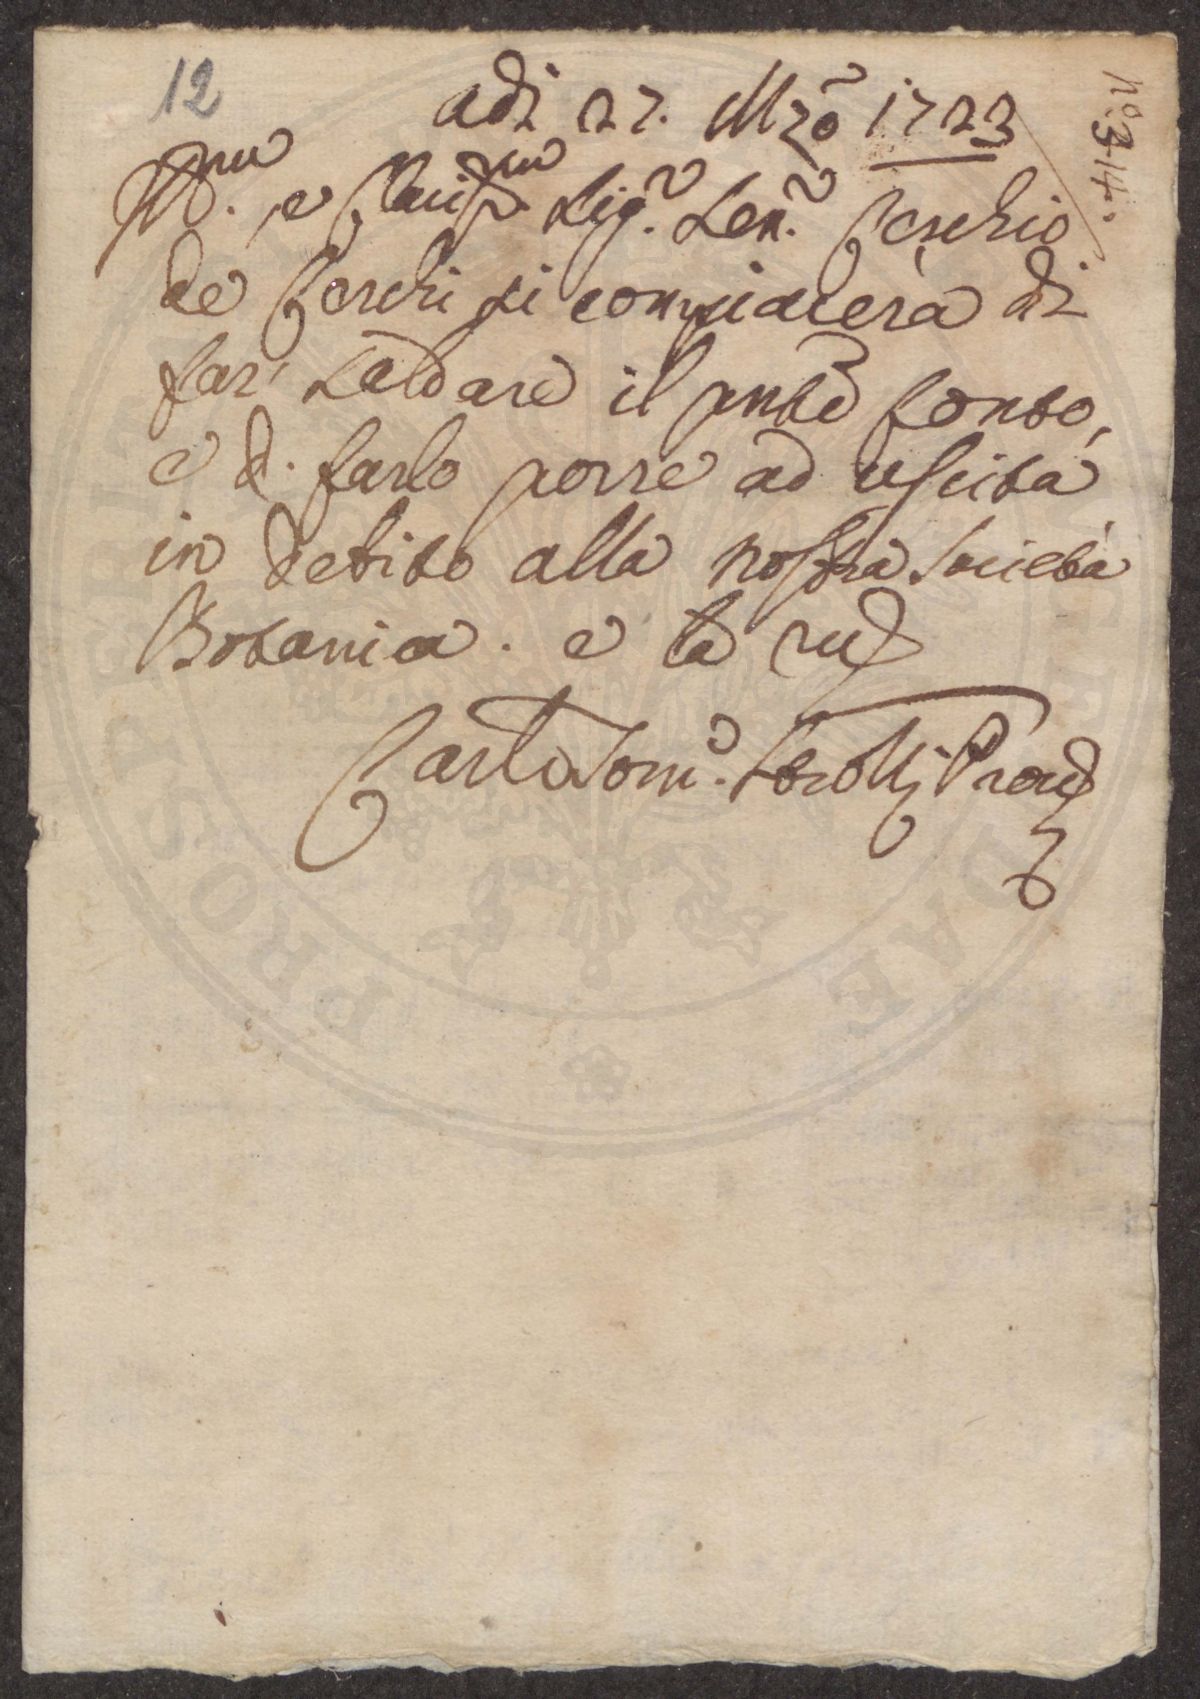 12
adi 27. Mzõ 1723
nº 314.
Ill.mo e Clariss.mo Sig.r Sen.r Cerchio
de Cerchi si compiacerà di
far saldare il pnte Conto,
e d. farlo porre ad uscita
in debito alla nostra Società
Botanica. e la riu
Carlo Tom.o Prou